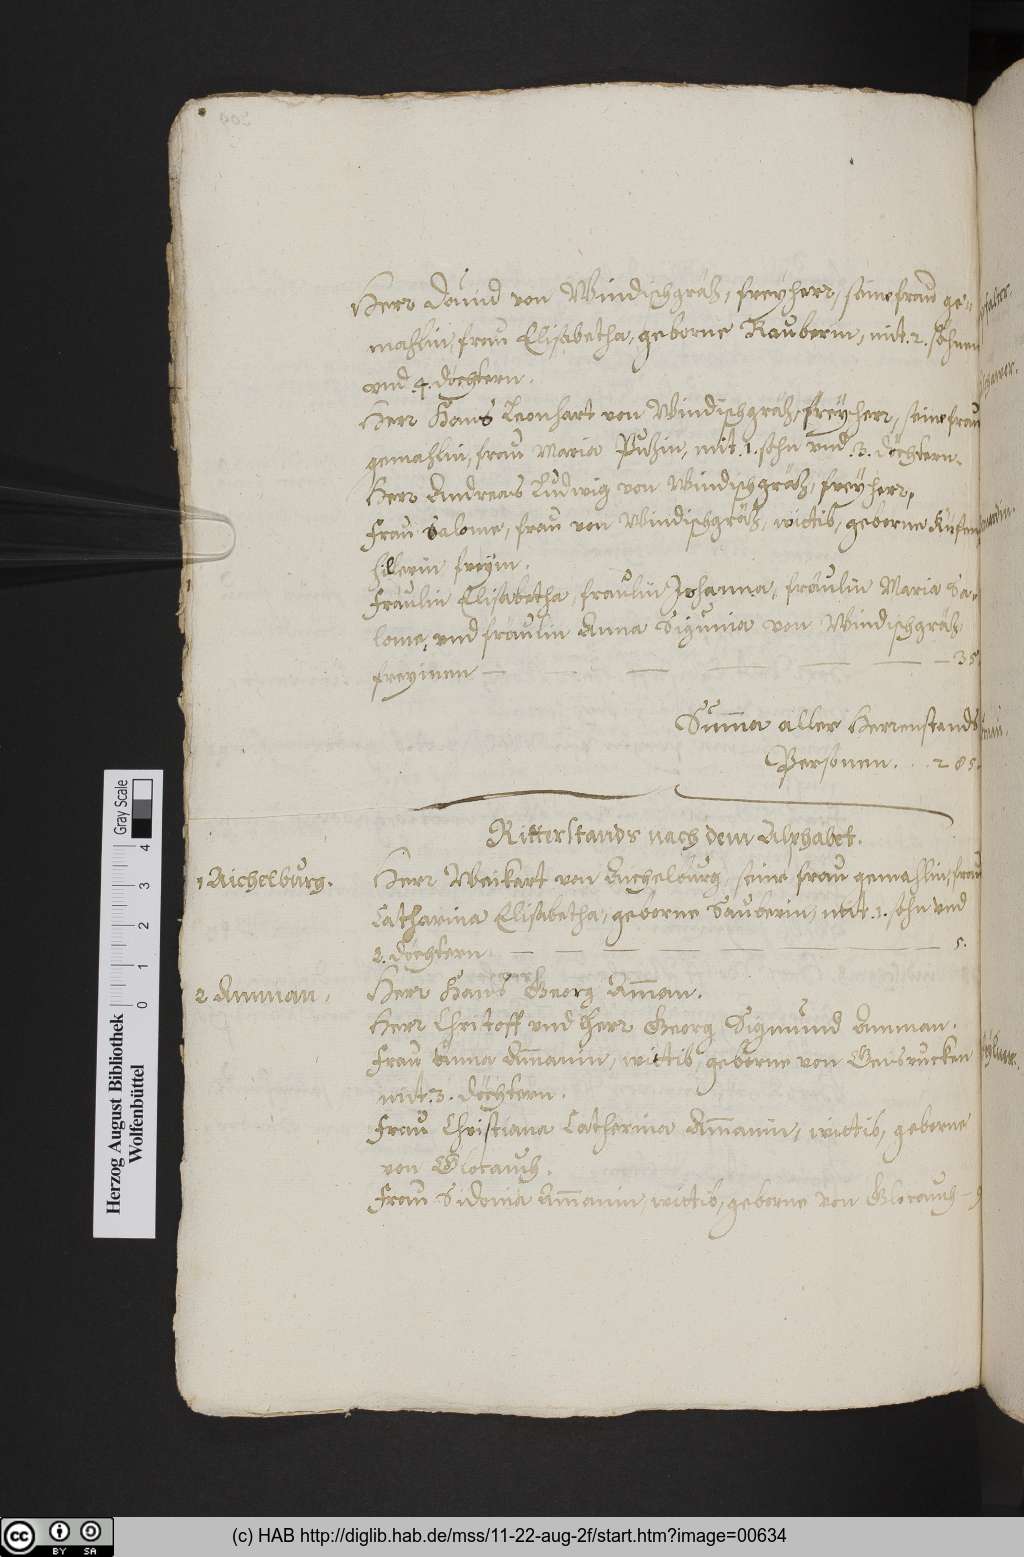 Herr Dauid von Windischgrätz, freyherr, seine frau ge=
mahlin, frau Elisabetha, geborne Rauberin, mit .2. söhnen
vnd .4. döchtern.
Herr Hans Leonhart von Windischgrätz, freyherr, seine frau
gemahlin, frau Maria Putzin, mit .1. sohn vnd .3. döchtern.
Herr Andreas Ludwig von Windischgrätz, freyherr,
Frau Salome, frau von Windischgrätz, wittib, geborne
freyin.
Fräulin Elisabetha, fraulin Johanna, fräulin Maria Sa=
lome, vnd fräulin Anna von Windischgrätz
freyinen — — — — — — 35.
Summa aller Herrenstands
Personen. . . 285.
Ritterstands nach dem Alphabet.
1 Aichelburg.
Herr Weikart von Aichelburg, seine frau gemahlin, frau
Catharina Elisabetha, geborne Sauberin, mit .1. sohn vnd
2. döchtern. — — — — — — 5.
2 Amman.
Herr Hans Georg Amman.
Herr Christoff vnd Herr Georg Sigmund Amman.
Frau Anna Amanin, wittib, geborne von
mit .3. döchtern.
Frau Christiana Catherina Amanin, wittib, geborne
von
Frau Sidonia Amanin, wittib, geborne von
Herzog August Bibliothek
Wolfenbüttel
Gray Scale
0 1 2 3 4
CC BY SA
(c) HAB http://diglib.hab.de/mss/11-22-aug-2f/start.htm?image=00634